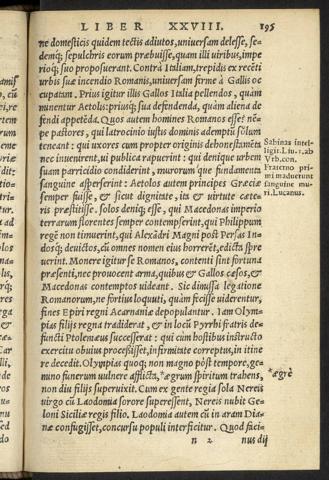 LIBER XXVIII. 195
ne domesticis quidem tectis adiutos, uniuersam delesse, se-
demq; sepulchris eorum præbuisse, quam illi uiribus, impe
rioq; suo proposuerant. Contrà Italiam, trepidis ex recẽti
urbis suæ incendio Romanis, uniuersam firmè à Gallis oc
cupatam. Prius igitur illis Gallos Italia pellendos, quàm
minentur Aetolis: priusq; sua defendenda, quàm aliena de
fendi appetẽda. Quos autem homines Romanos esse? nẽ-
pe pastores, qui latrocinio iustis dominis ademptũ solum
teneant: qui uxores cum propter originis dehonestamẽta
nec inuenirent, ui publica rapuerint: qui denique urbem
suam parricidio condiderint, murorum que fundamenta
sanguine asperserint: Aetolos autem principes Græciæ
semper fuisse, & sicut dignitate, ita & uirtute cæte-
ris præstitisse. solos deniq; esse, qui Macedonas imperio
terrarum florentes semper contempserint, qui Philippum
regẽ non timuerint, qui Alexãdri Magni post Persas In-
dosq; deuictos, cũ omnes nomen eius horrerẽt, edicta spre
uerint. Monere igitur se Romanos, contenti sint fortuna
præsenti, nec prouocent arma, quibus & Gallos cæsos, &
Macedonas contemptos uideant. Sic dimissa legatione
Romanorum, ne fortius loquuti, quàm fecisse uiderentur,
fines Epiri regni Acarnaniæ depopulantur. Iam Olym-
pias filijs regna tradiderat, & in locũ Pyrrhi fratris de-
functi Ptolemæus successerat: qui cùm hostibus instructo
exercitu obuius processisset, infirmitate correptus, in itine
re decedit. Olympias quoq; non magno pòst tempore, ge-
mino funerum uulnere afflicta, *ægrum spiritum trahens,
non diu filijs superuixit. Cum ex gente regia sola Nereis
uirgo cũ Laodomia sorore superessent, Nereis nubit Ge-
loni Siciliæ regis filio. Laodomia autem cũ in aram Dia-
næ confugisset, concursu populi interficitur. Quod faci-
n 2 nus dij
Sabinas intel-
ligit. Li. lu. 1. ab
Vrb. con.
Fraterno pri-
mi maduerunt
sanguine mu-
ri. Lucanus.
*ægrè